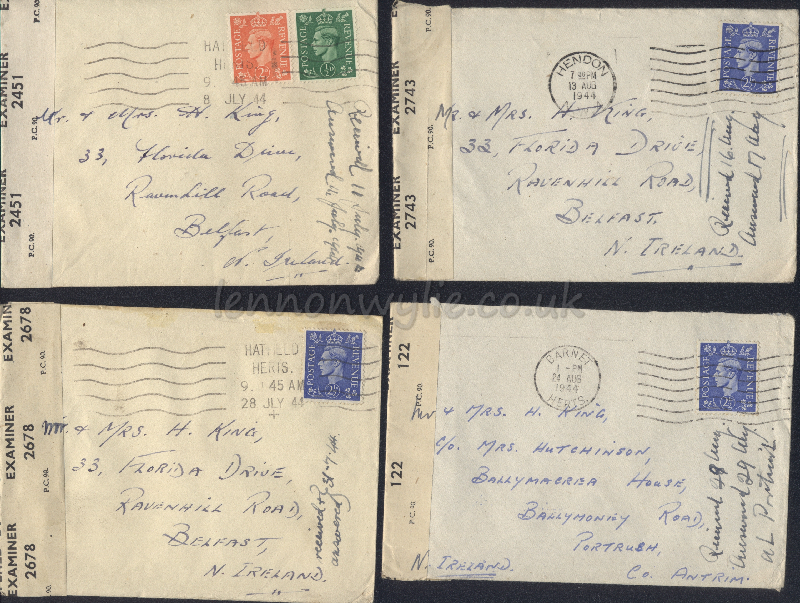 EXAMINER
2451
P.C. 90.
EXAMINER
2451
P.C. 90.
8 JLY 44
POSTAGE REVENUE
POSTAGE REVENUE
Mr. & Mrs. H. King,
33, Florida Drive,
Ravenhill Road,
Belfast,
N. Ireland.
Received 11 July
EXAMINER
2743
P.C. 90.
EXAMINER
2743
P.C. 90.
HENDON
PM
13 AUG
1944
POSTAGE REVENUE
Mr. & Mrs. H. King,
33, Florida Drive,
Ravenhill Road,
Belfast,
N. Ireland.
Received 16 Aug
Answered 17 Aug
lennonwylie.co.uk
EXAMINER
2678
P.C. 90.
EXAMINER
2678
P.C. 90.
EXAMINER
2678
HATFIELD
HERTS.
45 AM
28 JLY 44
POSTAGE REVENUE
Mr. & Mrs. H. King,
33, Florida Drive,
Ravenhill Road,
Belfast,
N. Ireland.
received
answered
122
P.C. 90.
122
P.C. 90.
BARNET
1 - PM
24 AUG
1944
HERTS
POSTAGE REVENUE
Mr & Mrs. H. King,
C/o Mrs. Hutchinson,
Ballymacrea House,
Ballymoney Road,
Portrush,
Co. Antrim.
N. Ireland.
Received 28 Aug
Answered 29 Aug
at Portrush